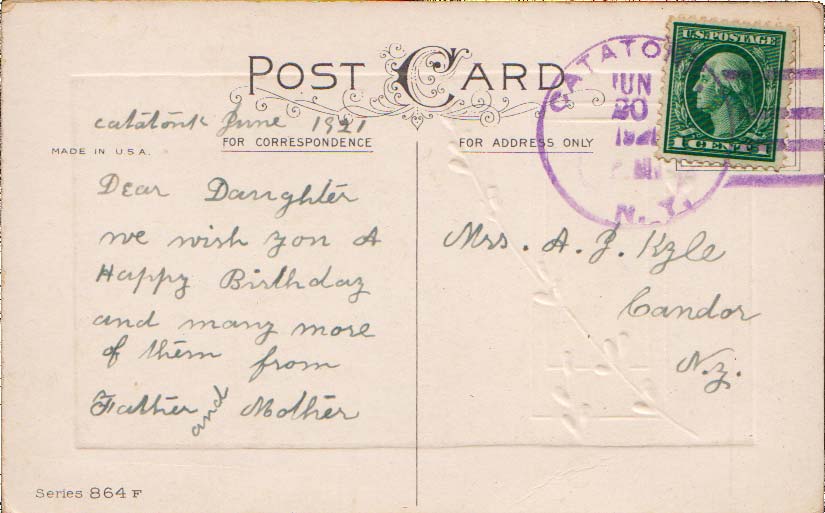 POST CARD
U.S. POSTAGE
1 CENT 1
CATATON
JUN
20
1921
N.Y.
catatonk June 1921
FOR CORRESPONDENCE
FOR ADDRESS ONLY
MADE IN U.S.A.
Dear Daughter
we wish you A
Happy Birthday
and many more
of them from
Father and Mother
Mrs. A. J. Kyle
Candor
N.Y.
Series 864 F